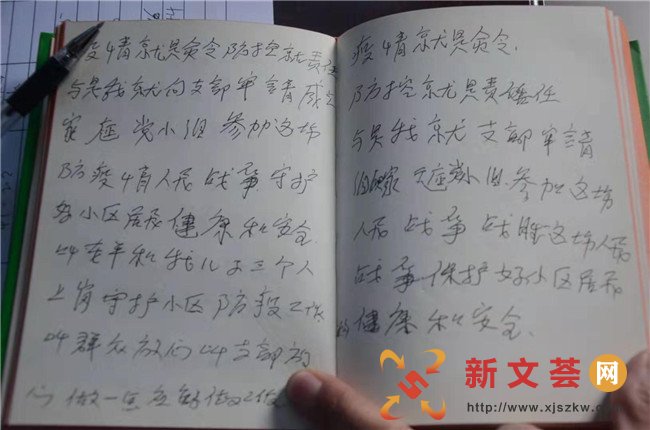 疫情就是命令防控就责任
与是我就向支部申請成立
家庭党小组参加这场
防疫情人民战争守护
好小区居民健康和安全
叫老平和我儿子三个人
上岗守护小区防疫工作
叫群众放心叫支部放
心做一点应
疫情就是命令.
防控就是責任
与是我就支部申請
家庭党小组参加这场
人民战争战胜这场人民
战争保护好小区居民
的健康和安全.
新文荟网
http://www.xjszkw.c